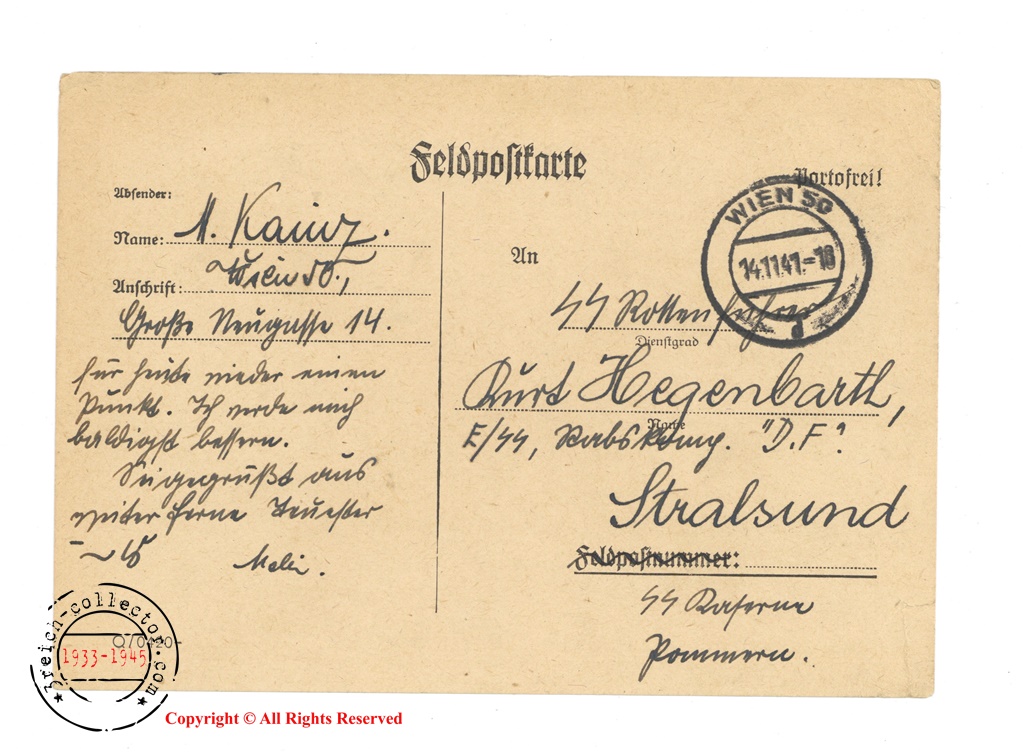 Feldpostkarte
Portofrei!
Absender:
Name: M. Kainz.
Wien 50.,
Anschrift:
Große Neugasse 14.
für heute wieder einen
Punkt. Ich werde mich
baldigst bessern.
Sei gegrüßt aus
weiter Ferne
WIEN 50
14.11.41.-18
d
An
SS Rottenführer
Dienstgrad
Kurt Hegenbarth,
Name
E/SS, Stabskomp. "D.F".
Stralsund
Feldpostnummer:
SS Kaserne
Pommern.
Q/0420
3reich-collector.com
1933-1945
Copyright © All Rights Reserved